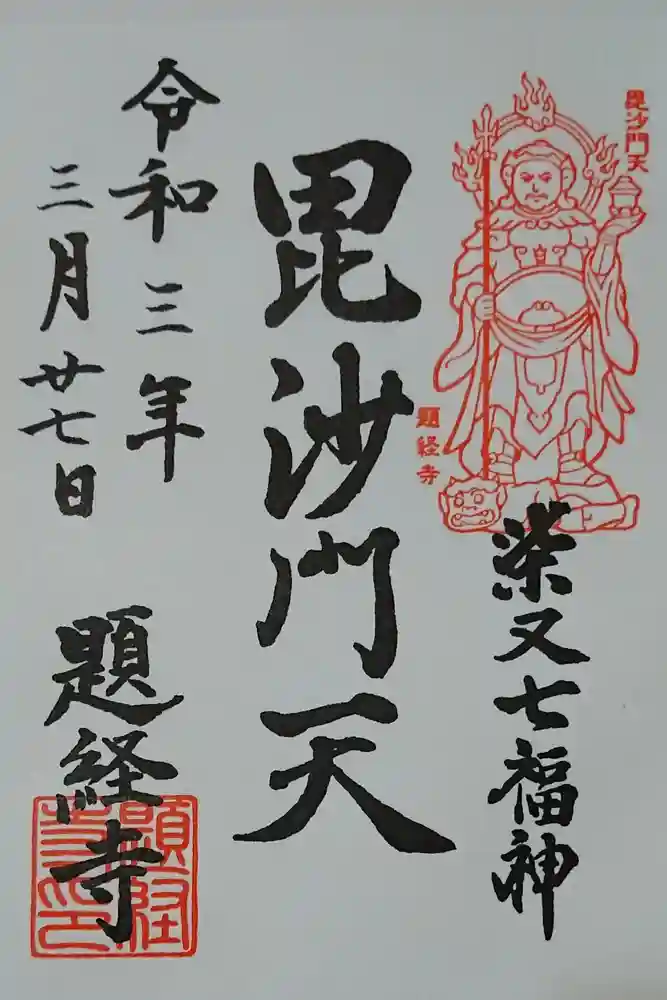 毘沙門天
題経寺
柴又七福神
毘沙門天
令和三年
三月廿七日
題経寺
題経寺印